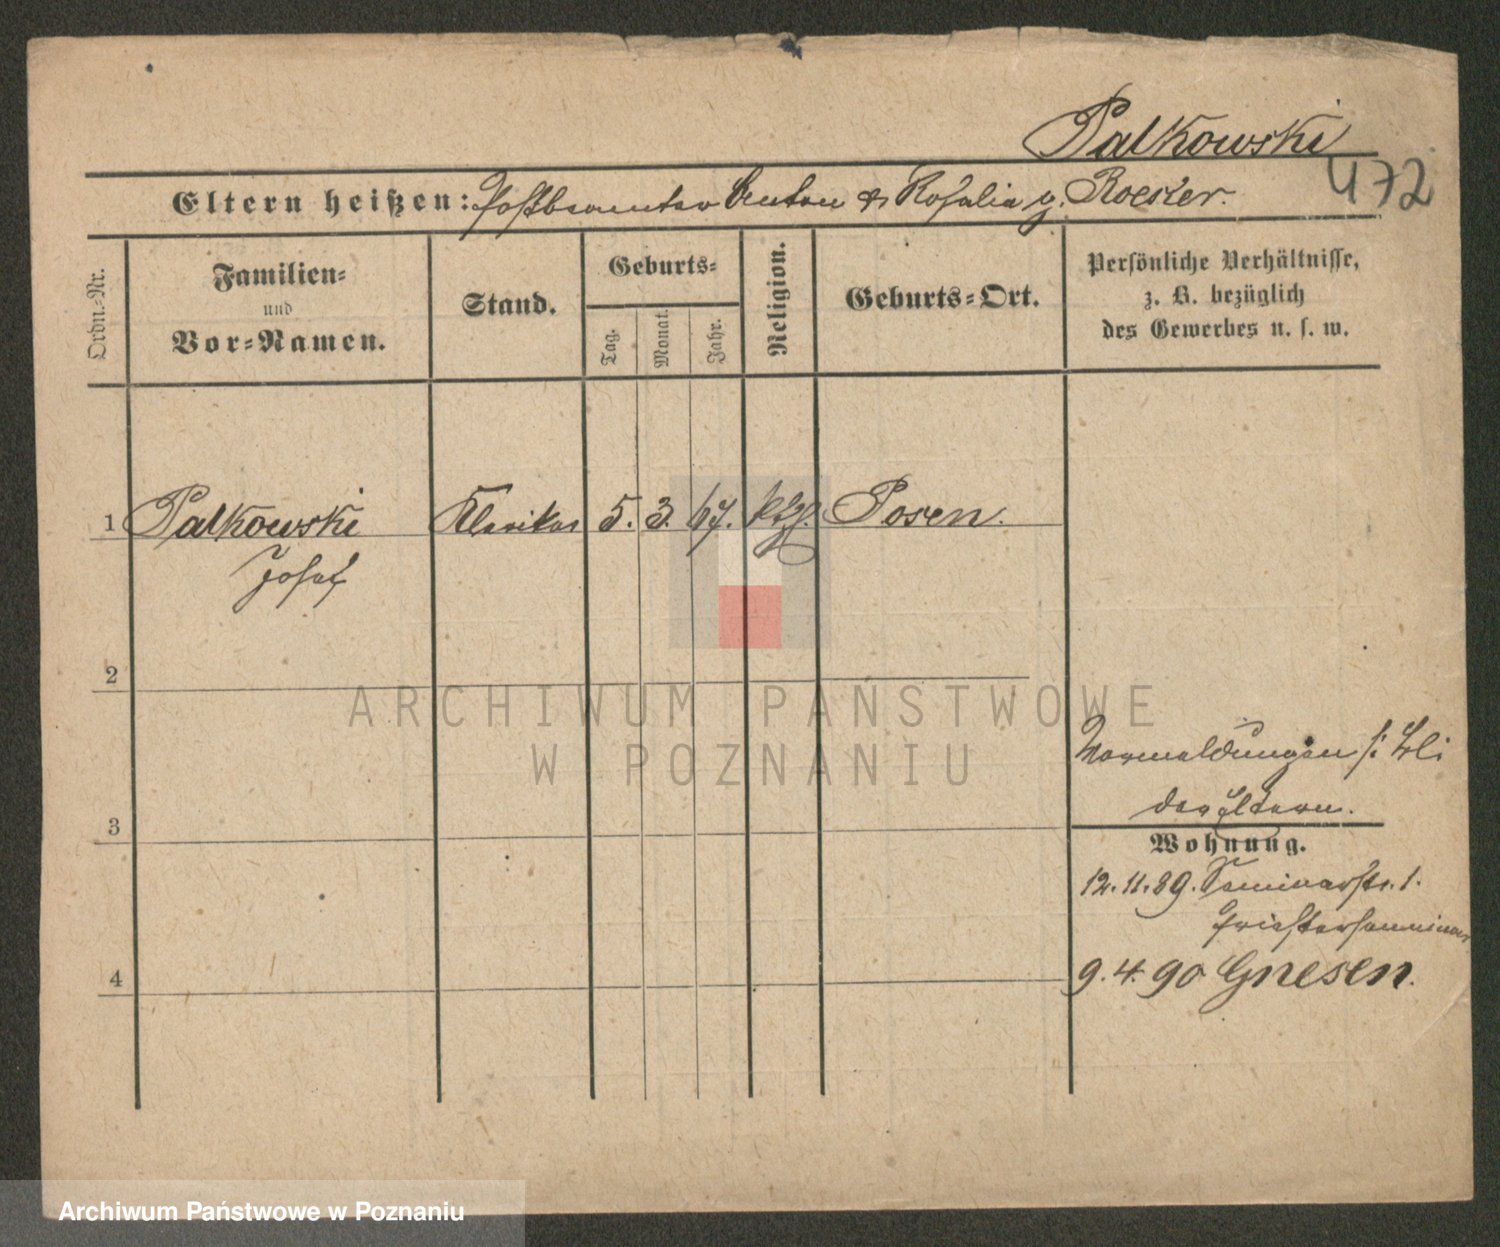 Palkowski
472
Eltern heißen: Postbeamter Anton & Rosalia g. Roesler.
Ordn.-Nr.
Familien-
und
Vor-Namen.
Stand.
Geburts-
Tag.
Monat.
Jahr.
Religion.
Geburts-Ort.
Persönliche Verhältnisse,
z. B. bezüglich
des Gewerbes u. s. w.
1 Palkowski Kleriker 5. 3. 67. kth. Posen.
Josef
2
ARCHIWUM PAŃSTWOWE
W POZNANIU
Vormeldungen s.
der Eltern.
3
Wohnung.
12.11.89. Seminarstr. 1.
Priesterseminar
4
9.4.90 Gnesen.
Archiwum Państwowe w Poznaniu